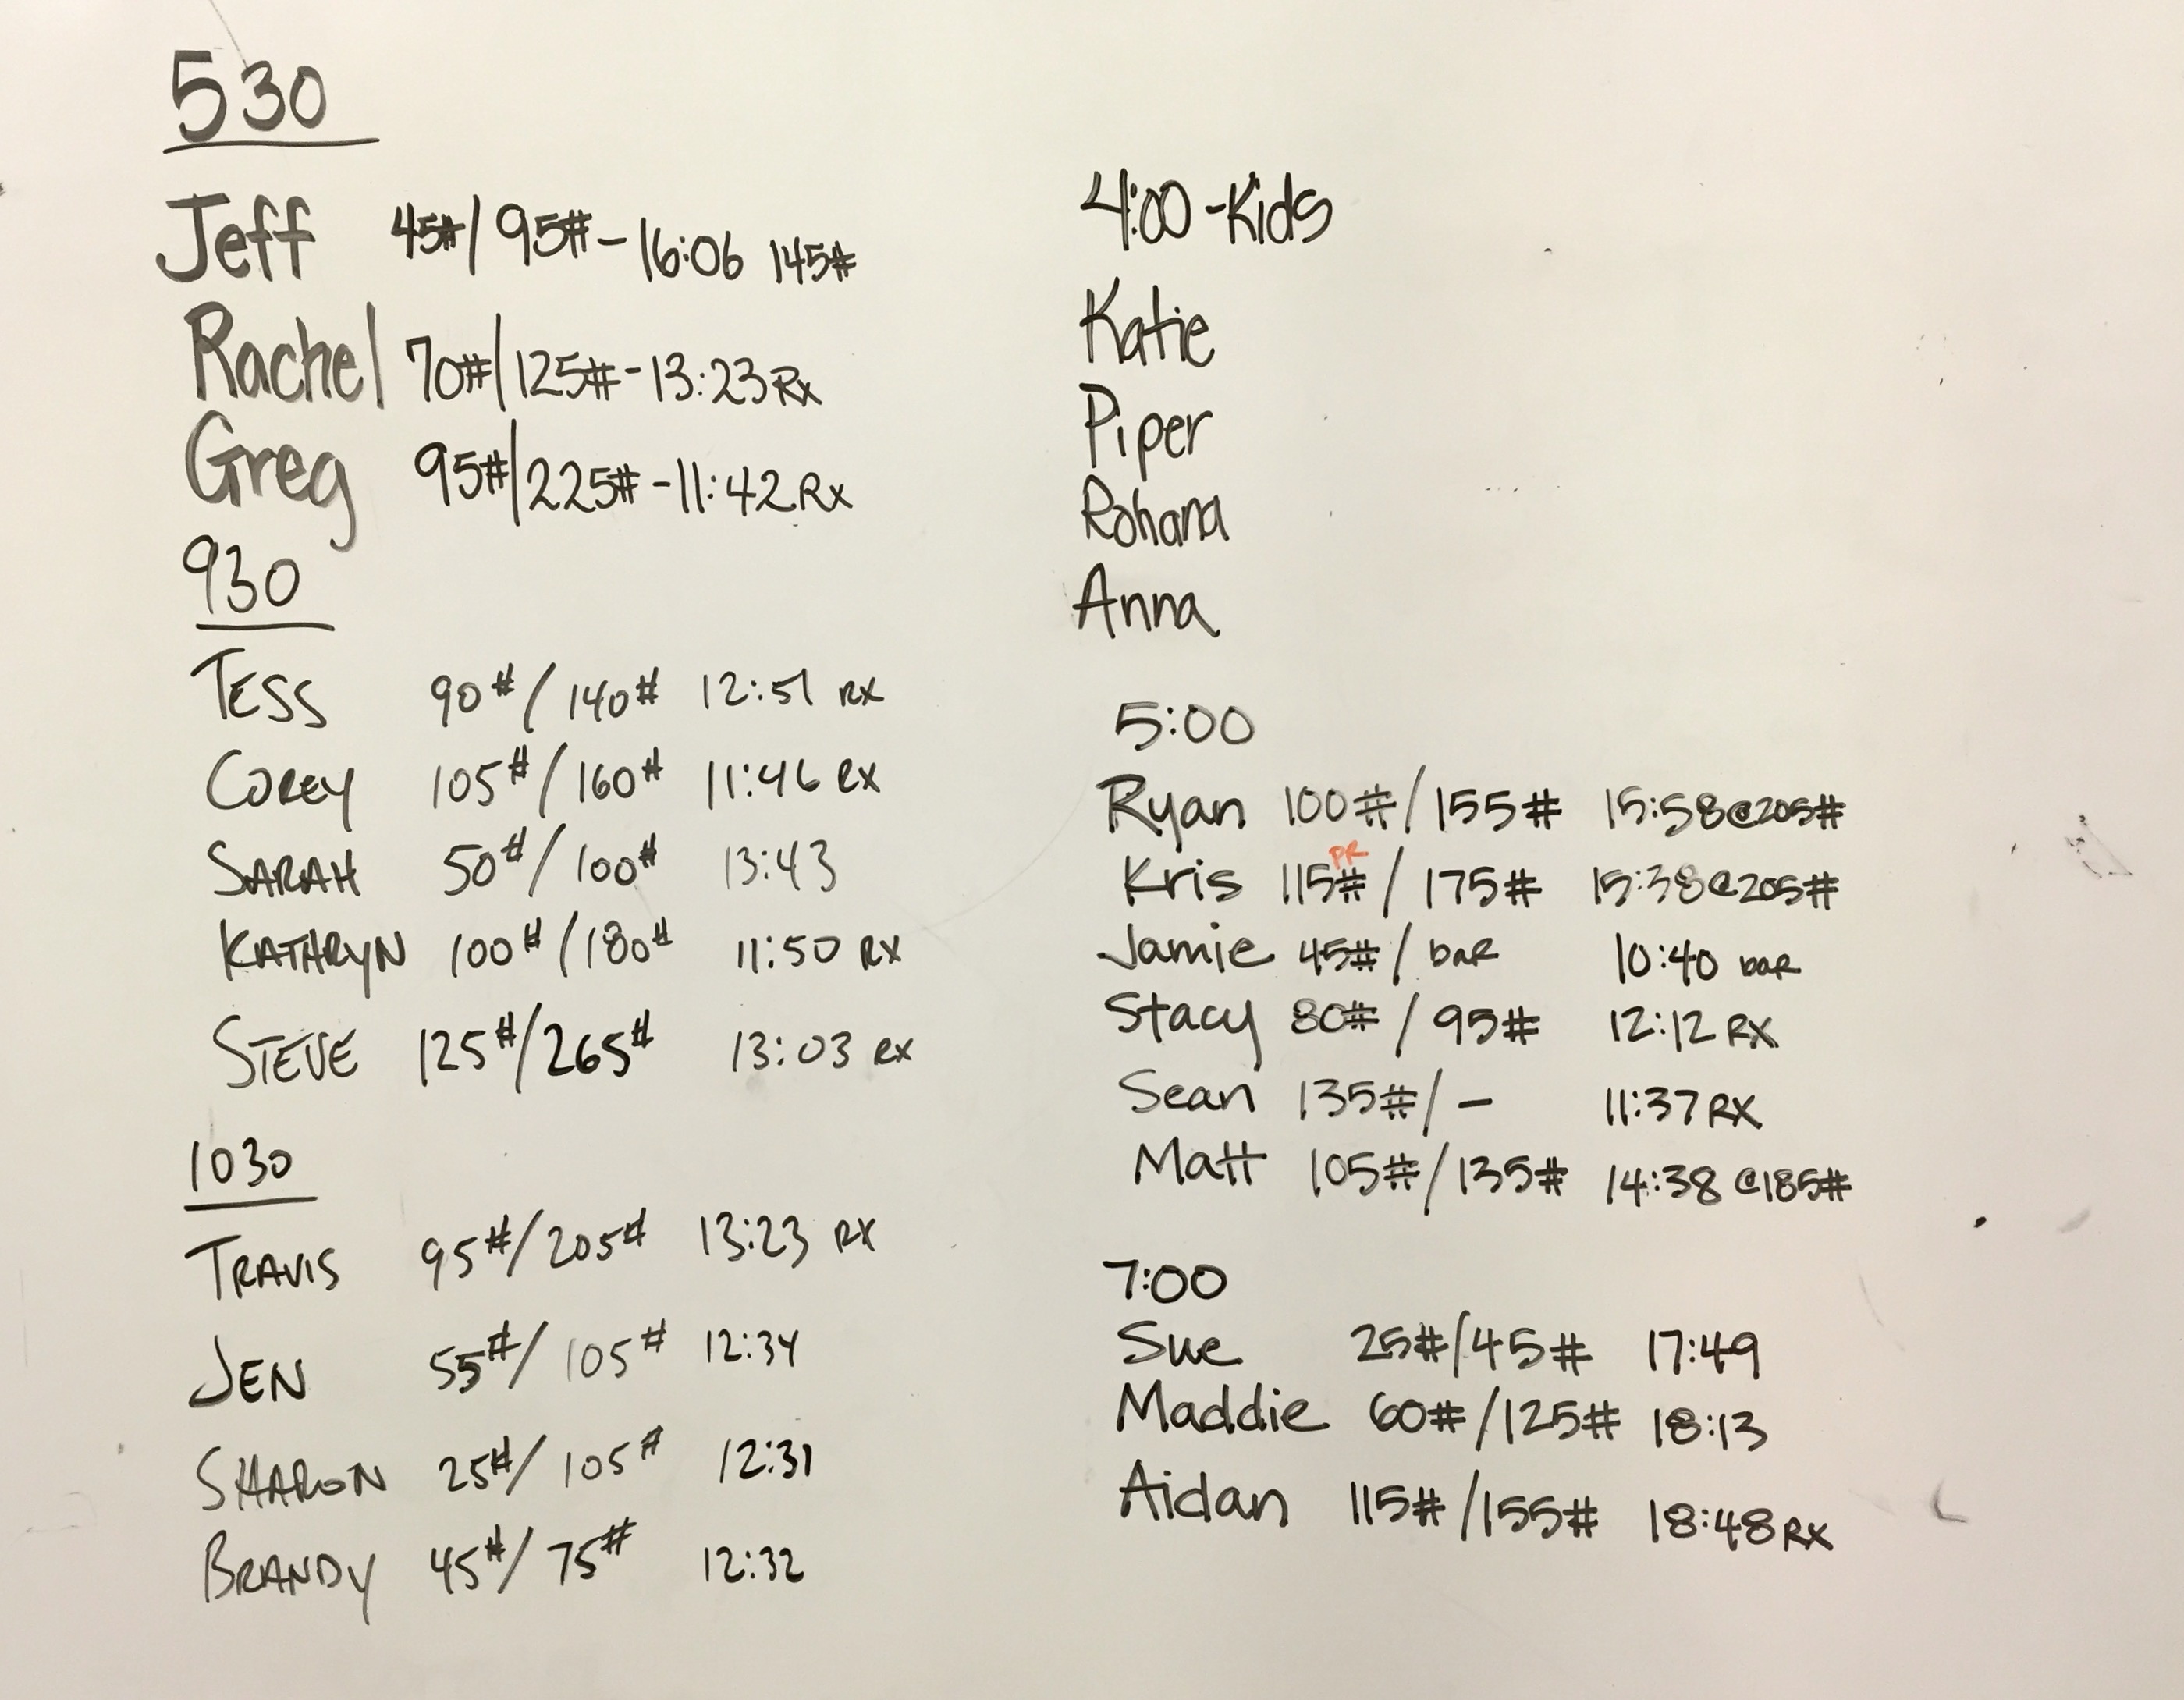 530
Jeff 45#/95#-16:06 145#
Rachel 70#/125#-13:23 Rx
Greg 95#/225#-11:42 Rx
930
TESS 90#/140# 12:51 RX
COREY 105#/160# 11:46 RX
SARAH 50#/100# 13:43
KATHRYN 100#/180# 11:50 RX
STEVE 125#/265# 13:03 RX
1030
TRAVIS 95#/205# 13:23 RX
JEN 55#/105# 12:34
SHARON 25#/105# 12:31
BRANDY 45#/75# 12:32
4:00-Kids
Katie
Piper
Rohana
Anna
5:00
Ryan 100#/155# 15:58@205#
PR
Kris 115#/175# 15:38@205#
Jamie 45#/baR 10:40 baR
Stacy 80#/95# 12:12 RX
Sean 135#/- 11:37 RX
Matt 105#/135# 14:38 @185#
7:00
Sue 25#/45# 17:49
Maddie 60#/125# 18:13
Aidan 115#/155# 18:48 RX